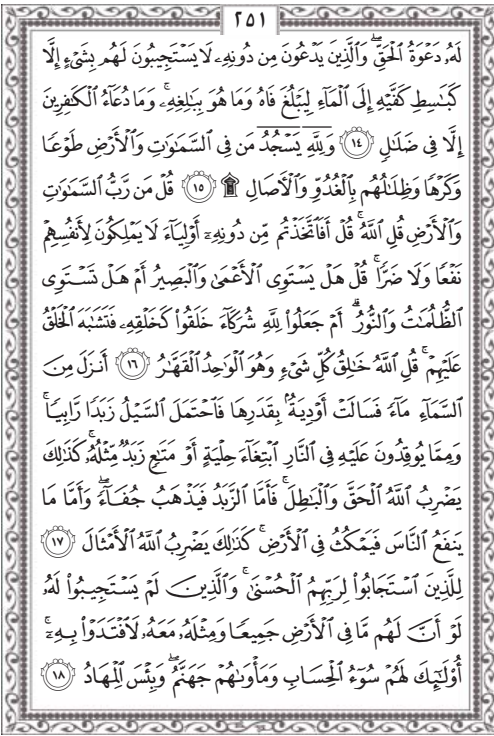 ٢٥١
لَهُۥ دَعۡوَةُ ٱلۡحَقِّۖ وَٱلَّذِينَ يَدۡعُونَ مِن دُونِهِۦ لَا يَسۡتَجِيبُونَ لَهُم بِشَيۡءٍ إِلَّا
كَبَٰسِطِ كَفَّيۡهِ إِلَى ٱلۡمَآءِ لِيَبۡلُغَ فَاهُ وَمَا هُوَ بِبَٰلِغِهِۦۚ وَمَا دُعَآءُ ٱلۡكَٰفِرِينَ
إِلَّا فِي ضَلَٰلٖ ١٤ وَلِلَّهِۤ يَسۡجُدُۤ مَن فِي ٱلسَّمَٰوَٰتِ وَٱلۡأَرۡضِ طَوۡعٗا
وَكَرۡهٗا وَظِلَٰلُهُم بِٱلۡغُدُوِّ وَٱلۡأٓصَالِ ۩ ١٥ قُلۡ مَن رَّبُّ ٱلسَّمَٰوَٰتِ
وَٱلۡأَرۡضِ قُلِ ٱللَّهُۚ قُلۡ أَفَٱتَّخَذۡتُم مِّن دُونِهِۦٓ أَوۡلِيَآءَ لَا يَمۡلِكُونَ لِأَنفُسِهِمۡ
نَفۡعٗا وَلَا ضَرّٗاۚ قُلۡ هَلۡ يَسۡتَوِي ٱلۡأَعۡمَىٰ وَٱلۡبَصِيرُ أَمۡ هَلۡ تَسۡتَوِي
ٱلظُّلُمَٰتُ وَٱلنُّورُۗ أَمۡ جَعَلُواْ لِلَّهِ شُرَكَآءَ خَلَقُواْ كَخَلۡقِهِۦ فَتَشَٰبَهَ ٱلۡخَلۡقُ
عَلَيۡهِمۡۚ قُلِ ٱللَّهُ خَٰلِقُ كُلِّ شَيۡءٖ وَهُوَ ٱلۡوَٰحِدُ ٱلۡقَهَّٰرُ ١٦ أَنزَلَ مِنَ
ٱلسَّمَآءِ مَآءٗ فَسَالَتۡ أَوۡدِيَةُۢ بِقَدَرِهَا فَٱحۡتَمَلَ ٱلسَّيۡلُ زَبَدٗا رَّابِيٗاۖ
وَمِمَّا يُوقِدُونَ عَلَيۡهِ فِي ٱلنَّارِ ٱبۡتِغَآءَ حِلۡيَةٍ أَوۡ مَتَٰعٖ زَبَدٞ مِّثۡلُهُۥۚ كَذَٰلِكَ
يَضۡرِبُ ٱللَّهُ ٱلۡحَقَّ وَٱلۡبَٰطِلَۚ فَأَمَّا ٱلزَّبَدُ فَيَذۡهَبُ جُفَآءٗۖ وَأَمَّا مَا
يَنفَعُ ٱلنَّاسَ فَيَمۡكُثُ فِي ٱلۡأَرۡضِۚ كَذَٰلِكَ يَضۡرِبُ ٱللَّهُ ٱلۡأَمۡثَالَ ١٧
لِلَّذِينَ ٱسۡتَجَابُواْ لِرَبِّهِمُ ٱلۡحُسۡنَىٰۚ وَٱلَّذِينَ لَمۡ يَسۡتَجِيبُواْ لَهُۥ
لَوۡ أَنَّ لَهُم مَّا فِي ٱلۡأَرۡضِ جَمِيعٗا وَمِثۡلَهُۥ مَعَهُۥ لَٱفۡتَدَوۡاْ بِهِۦٓۚ
أُوْلَٰٓئِكَ لَهُمۡ سُوٓءُ ٱلۡحِسَابِ وَمَأۡوَىٰهُمۡ جَهَنَّمُۖ وَبِئۡسَ ٱلۡمِهَادُ ١٨